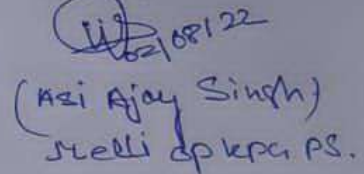 02/08/22
(ASI Ajay Singh)
Melli op PS.